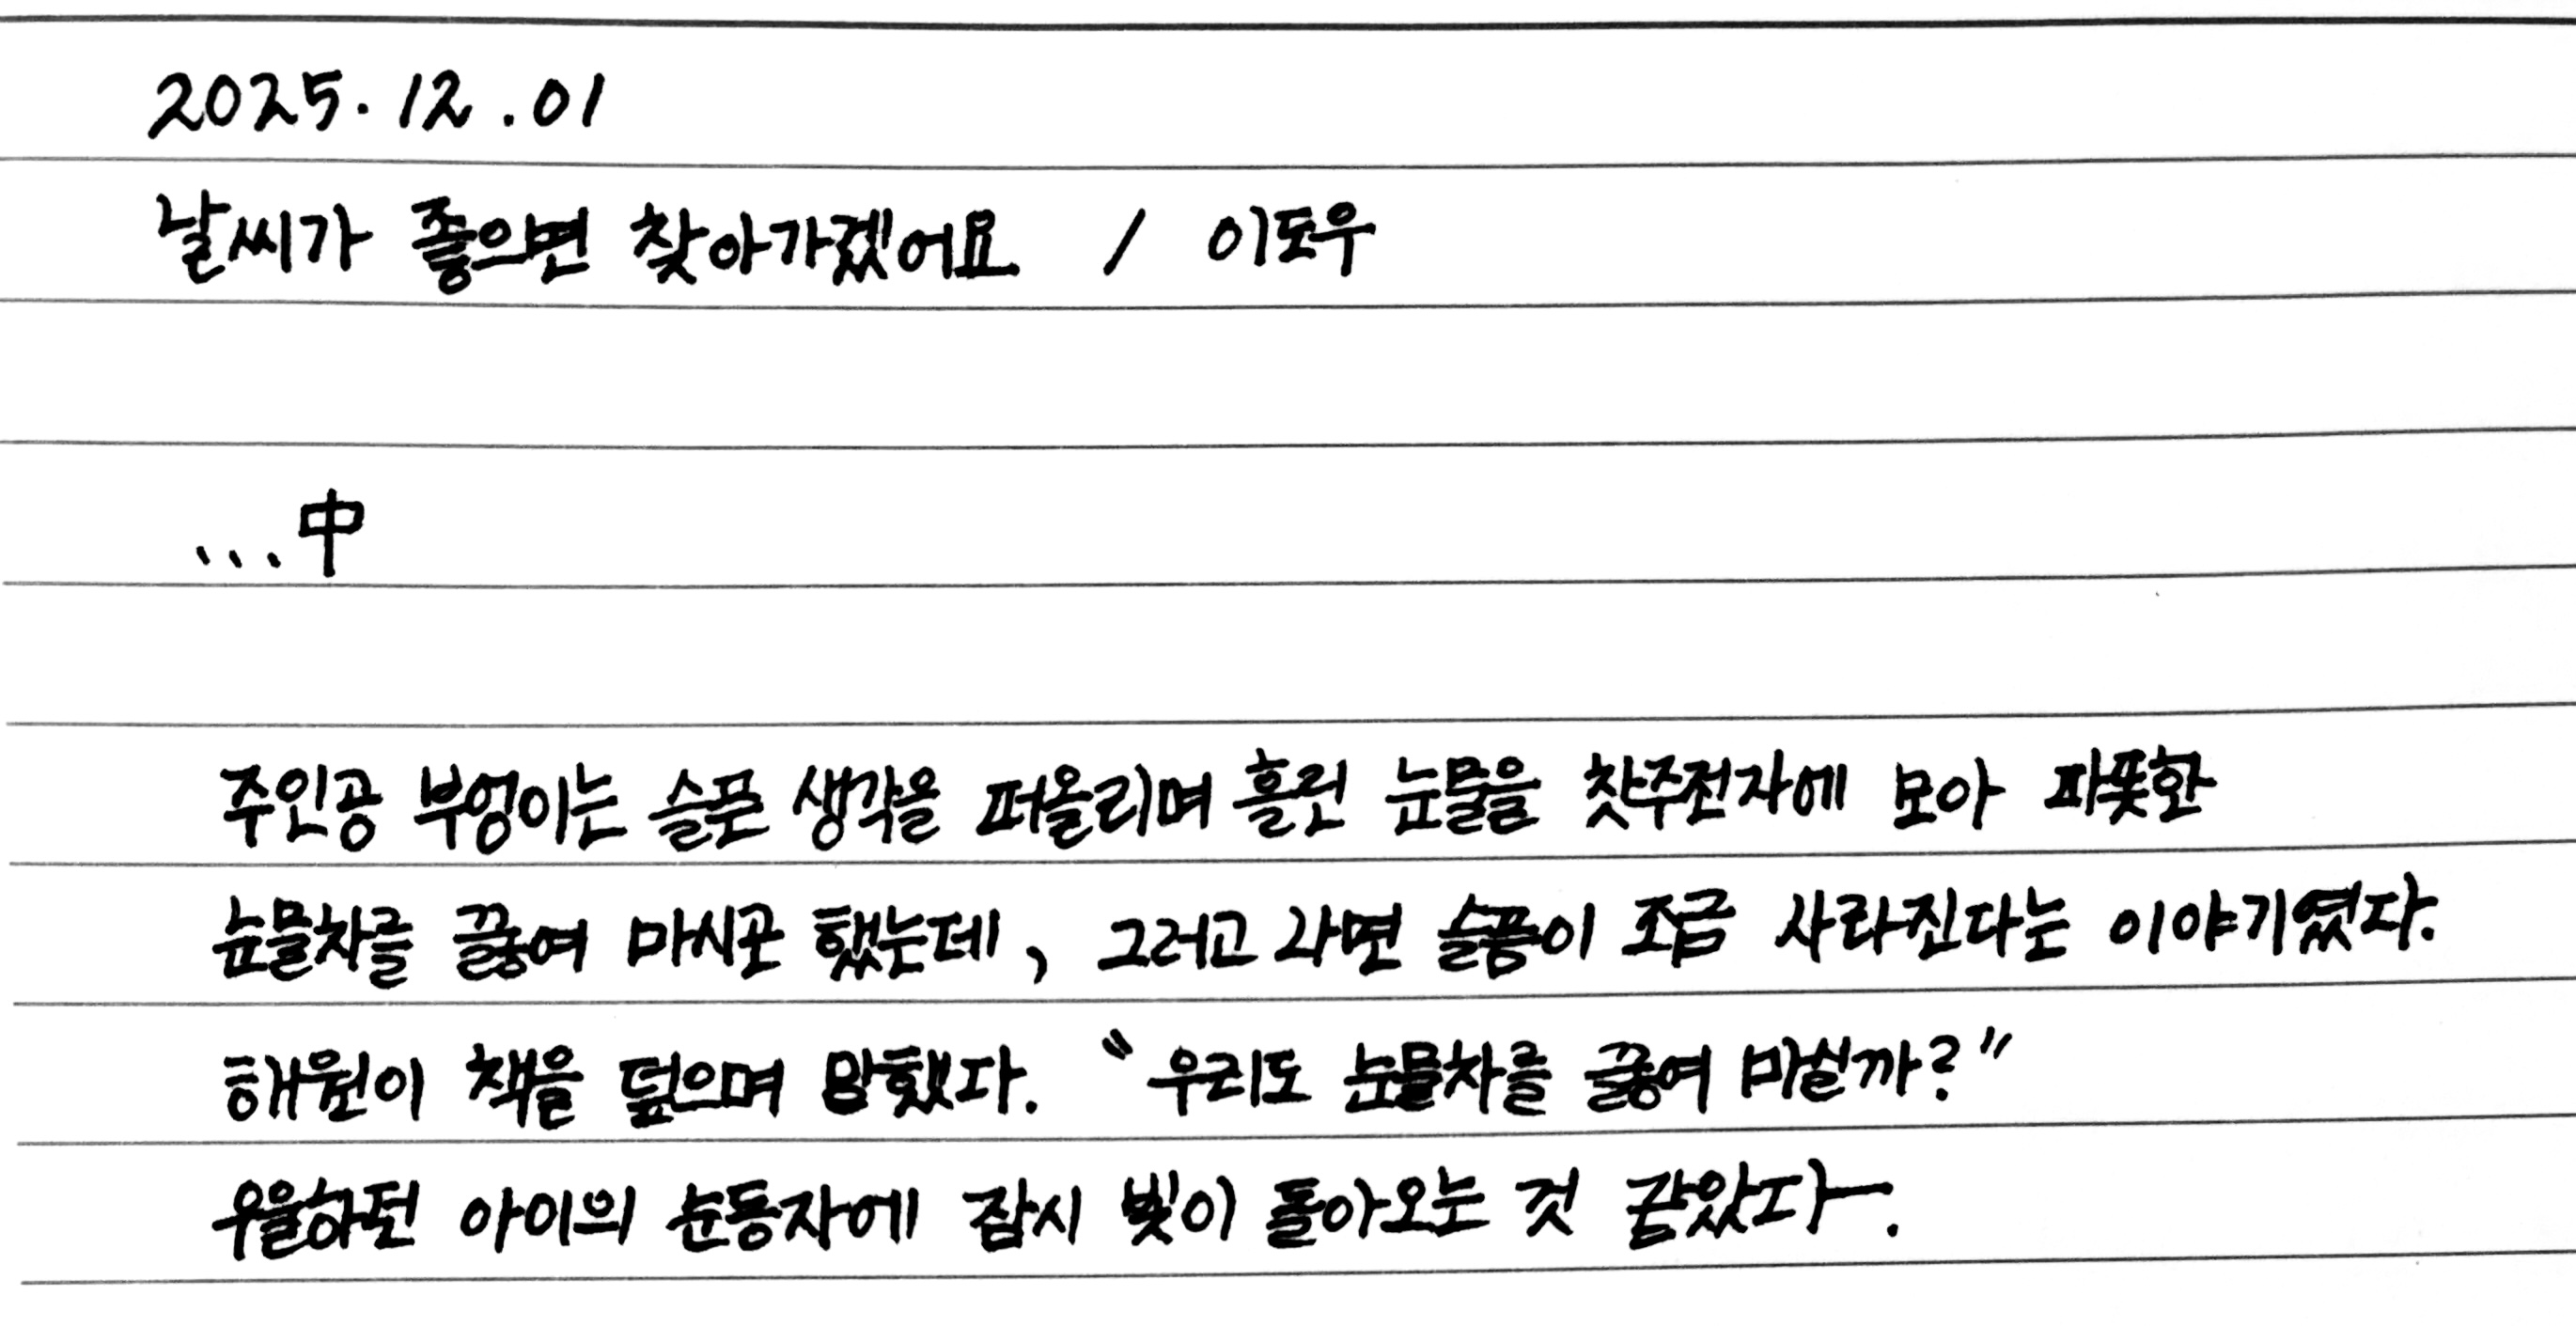 2025. 12. 01
날씨가 좋으면 찾아가겠어요 / 이도우
...中
주인공 부엉이는 슬픈 생각을 퍼올리며 흘린 눈물을 찻주전자에 모아 따뜻한
눈물차를 끓여 마시곤 했는데, 그러고 나면 슬픔이 조금 사라진다는 이야기였다.
해원이 책을 덮으며 말했다. “우리도 눈물차를 끓여 마실까?”
우울하던 아이의 눈동자에 잠시 빛이 돌아오는 것 같았다.